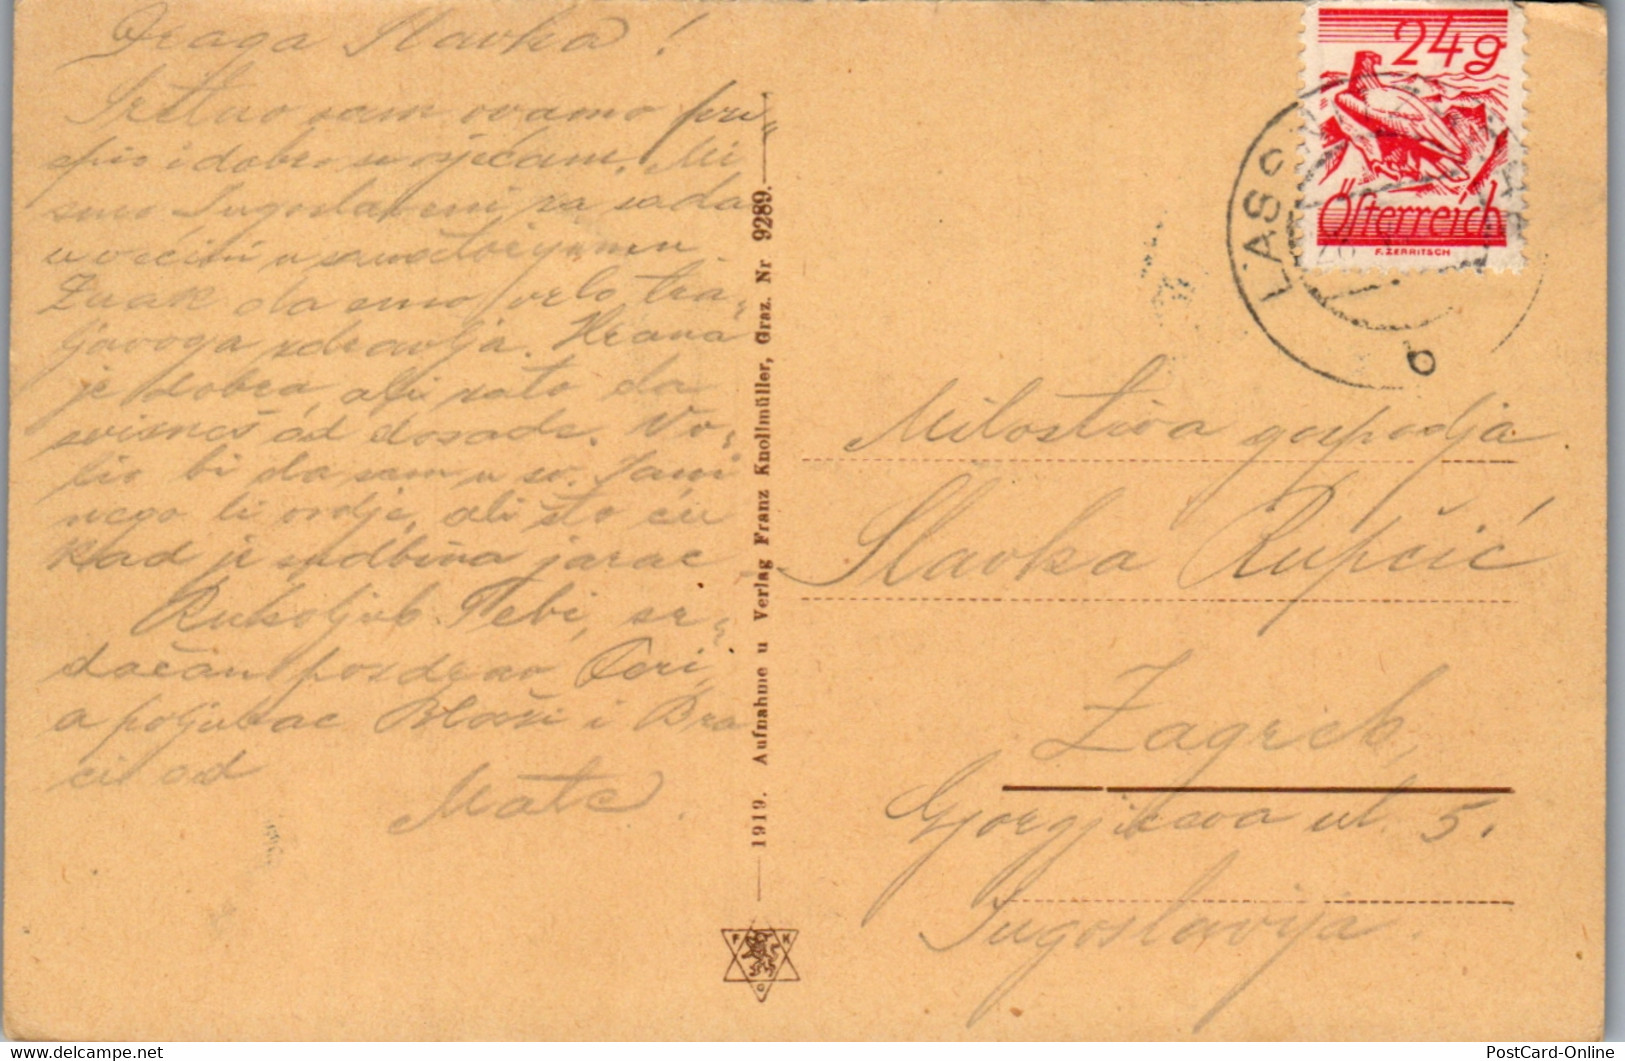 Draga Slavka!
Sretno sam ovamo pri-
spio i dobro se osjećam. Mi
smo Jugoslaveni za sada
u većini u sanatorijumu
Znak da smo vrlo tra-
ljavoga zdravlja. Hrana
je dobra, ali zato da
svisneš od dosade. Vo-
lio bi da sam u sv.
nego li ovdje, ali što ću
kad je sudbina jarac
Rukoljub Tebi, sr-
dačan pozdrav
a poljubac i Bra
ci od
Mate.
1919. Aufnahme u Verlag Franz Knollmüller, Graz. Nr 9289.
F K
G
24g
Österreich
F. ZERRITSCH
b
Milostiva gospodja
Slavka Rupčić
Zagreb,
Gjorgjićeva ul. 5.
Jugoslavija.
www.delcampe.net
PostCard-Online